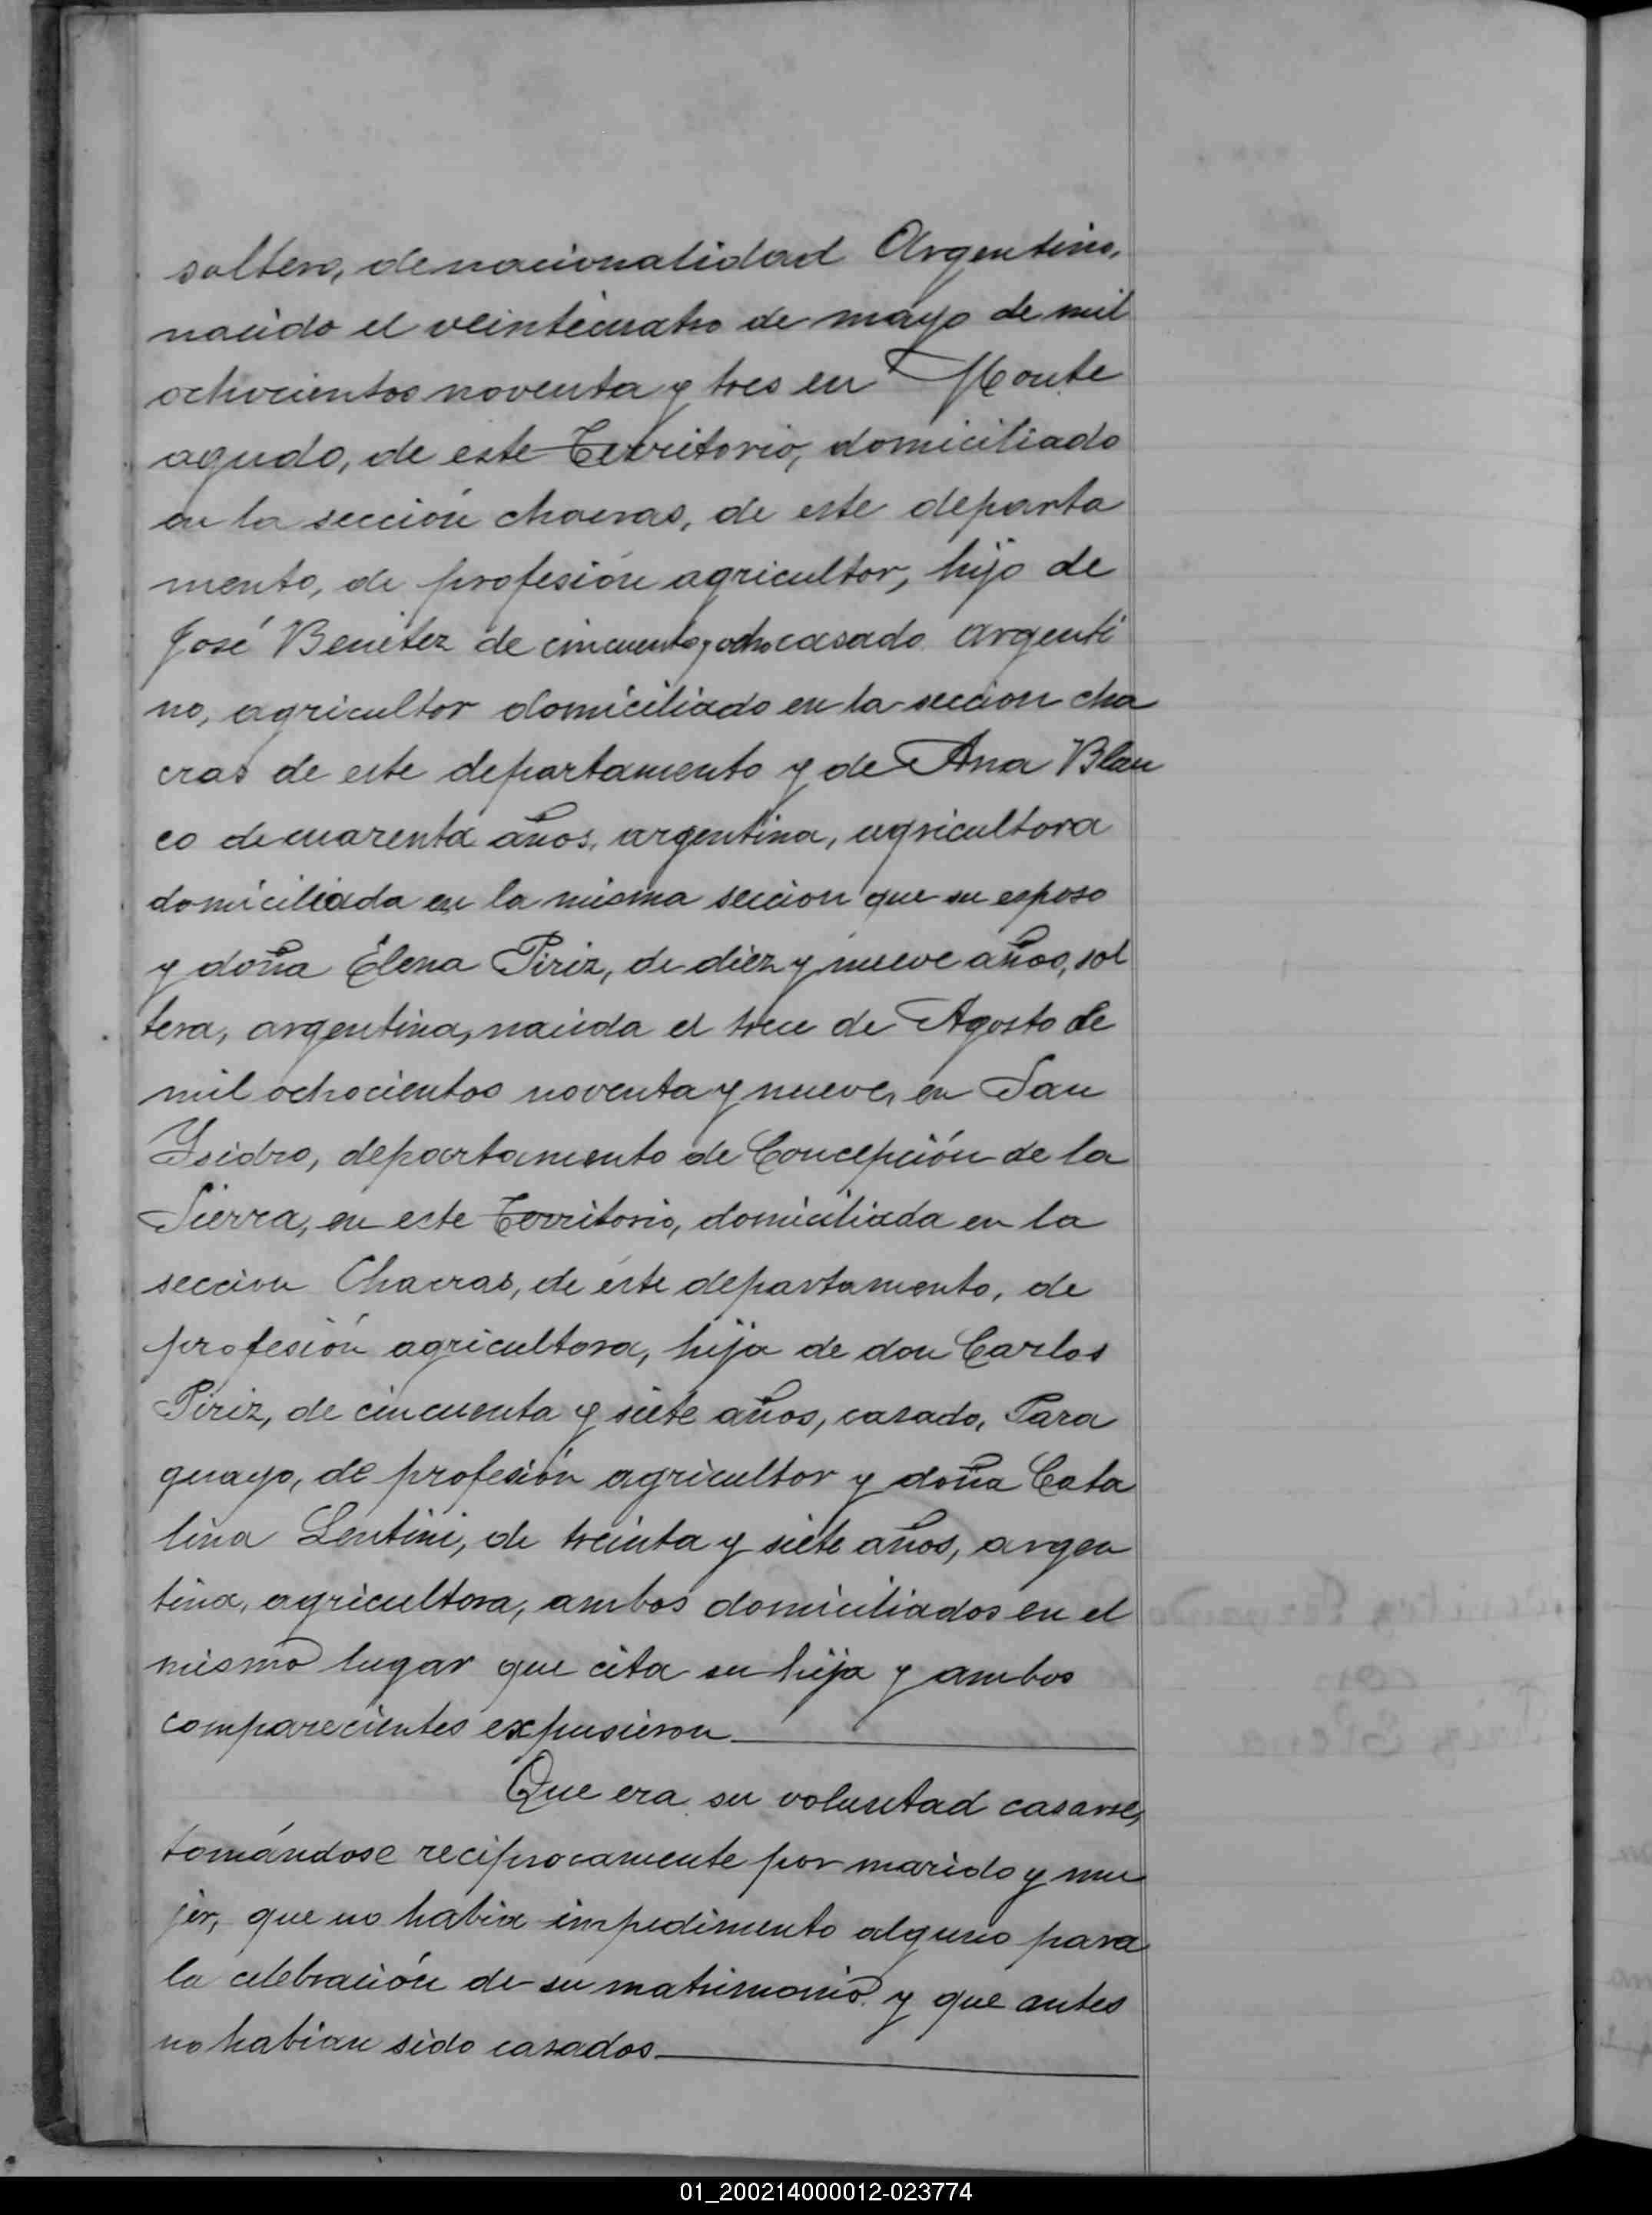 soltero, de nacionalidad Argentino,
nacido el veinticuatro de mayo de mil
ochocientos noventa y tres en Monte
agudo, de este Territorio, domiciliado
en la sección chacras, de este departa
mento, de profesión agricultor, hijo de
José Benitez de cincuenta y ocho casado argenti
no, agricultor domiciliado en la seccion cha
cras de este departamento y de Ana Blan
co de cuarenta años, argentina, agricultora
domiciliada en la misma seccion que su esposo
y doña Elena Piriz, de diez y nueve años, sol
tera, argentina, nacida el trece de Agosto de
mil ochocientos noventa y nueve, en San
Ysidro, departamento de Concepción de la
Sierra, en este Territorio, domiciliada en la
seccion Chacras, de éste departamento, de
profesión agricultora, hija de don Carlos
Piriz, de cincuenta y siete años, casado, Para
guayo, de profesión agricultor y doña Cata
lina Lentini, de treinta y siete años, argen
tina, agricultora, ambos domiciliados en el
mismo lugar que cita su hija y ambos
comparecientes expusieron
Que era su voluntad casarse,
tomándose reciprocamente por marido y mu
jer, que no habia impedimento alguno para
la celebración de su matrimonio y que antes
no habian sido casados
01_200214000012-023774